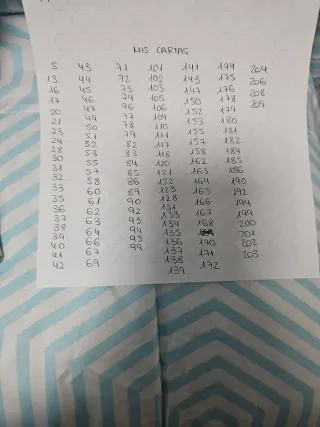 MIS CARTAS
5
13
16
17
20
21
23
24
28
30
31
32
33
35
36
37
38
39
40
41
42
43
44
45
46
47
49
50
51
52
53
55
57
58
60
61
62
63
64
66
67
69
71
72
73
74
76
77
78
79
82
83
84
85
86
89
90
92
93
94
95
99
101
102
103
105
106
109
110
111
117
118
120
121
122
123
128
131
133
134
135
136
137
138
139
141
143
147
150
152
153
155
157
158
162
163
164
165
166
167
168
170
171
172
174
175
176
178
179
180
181
182
184
185
186
190
192
194
199
200
201
202
203
204
206
208
209